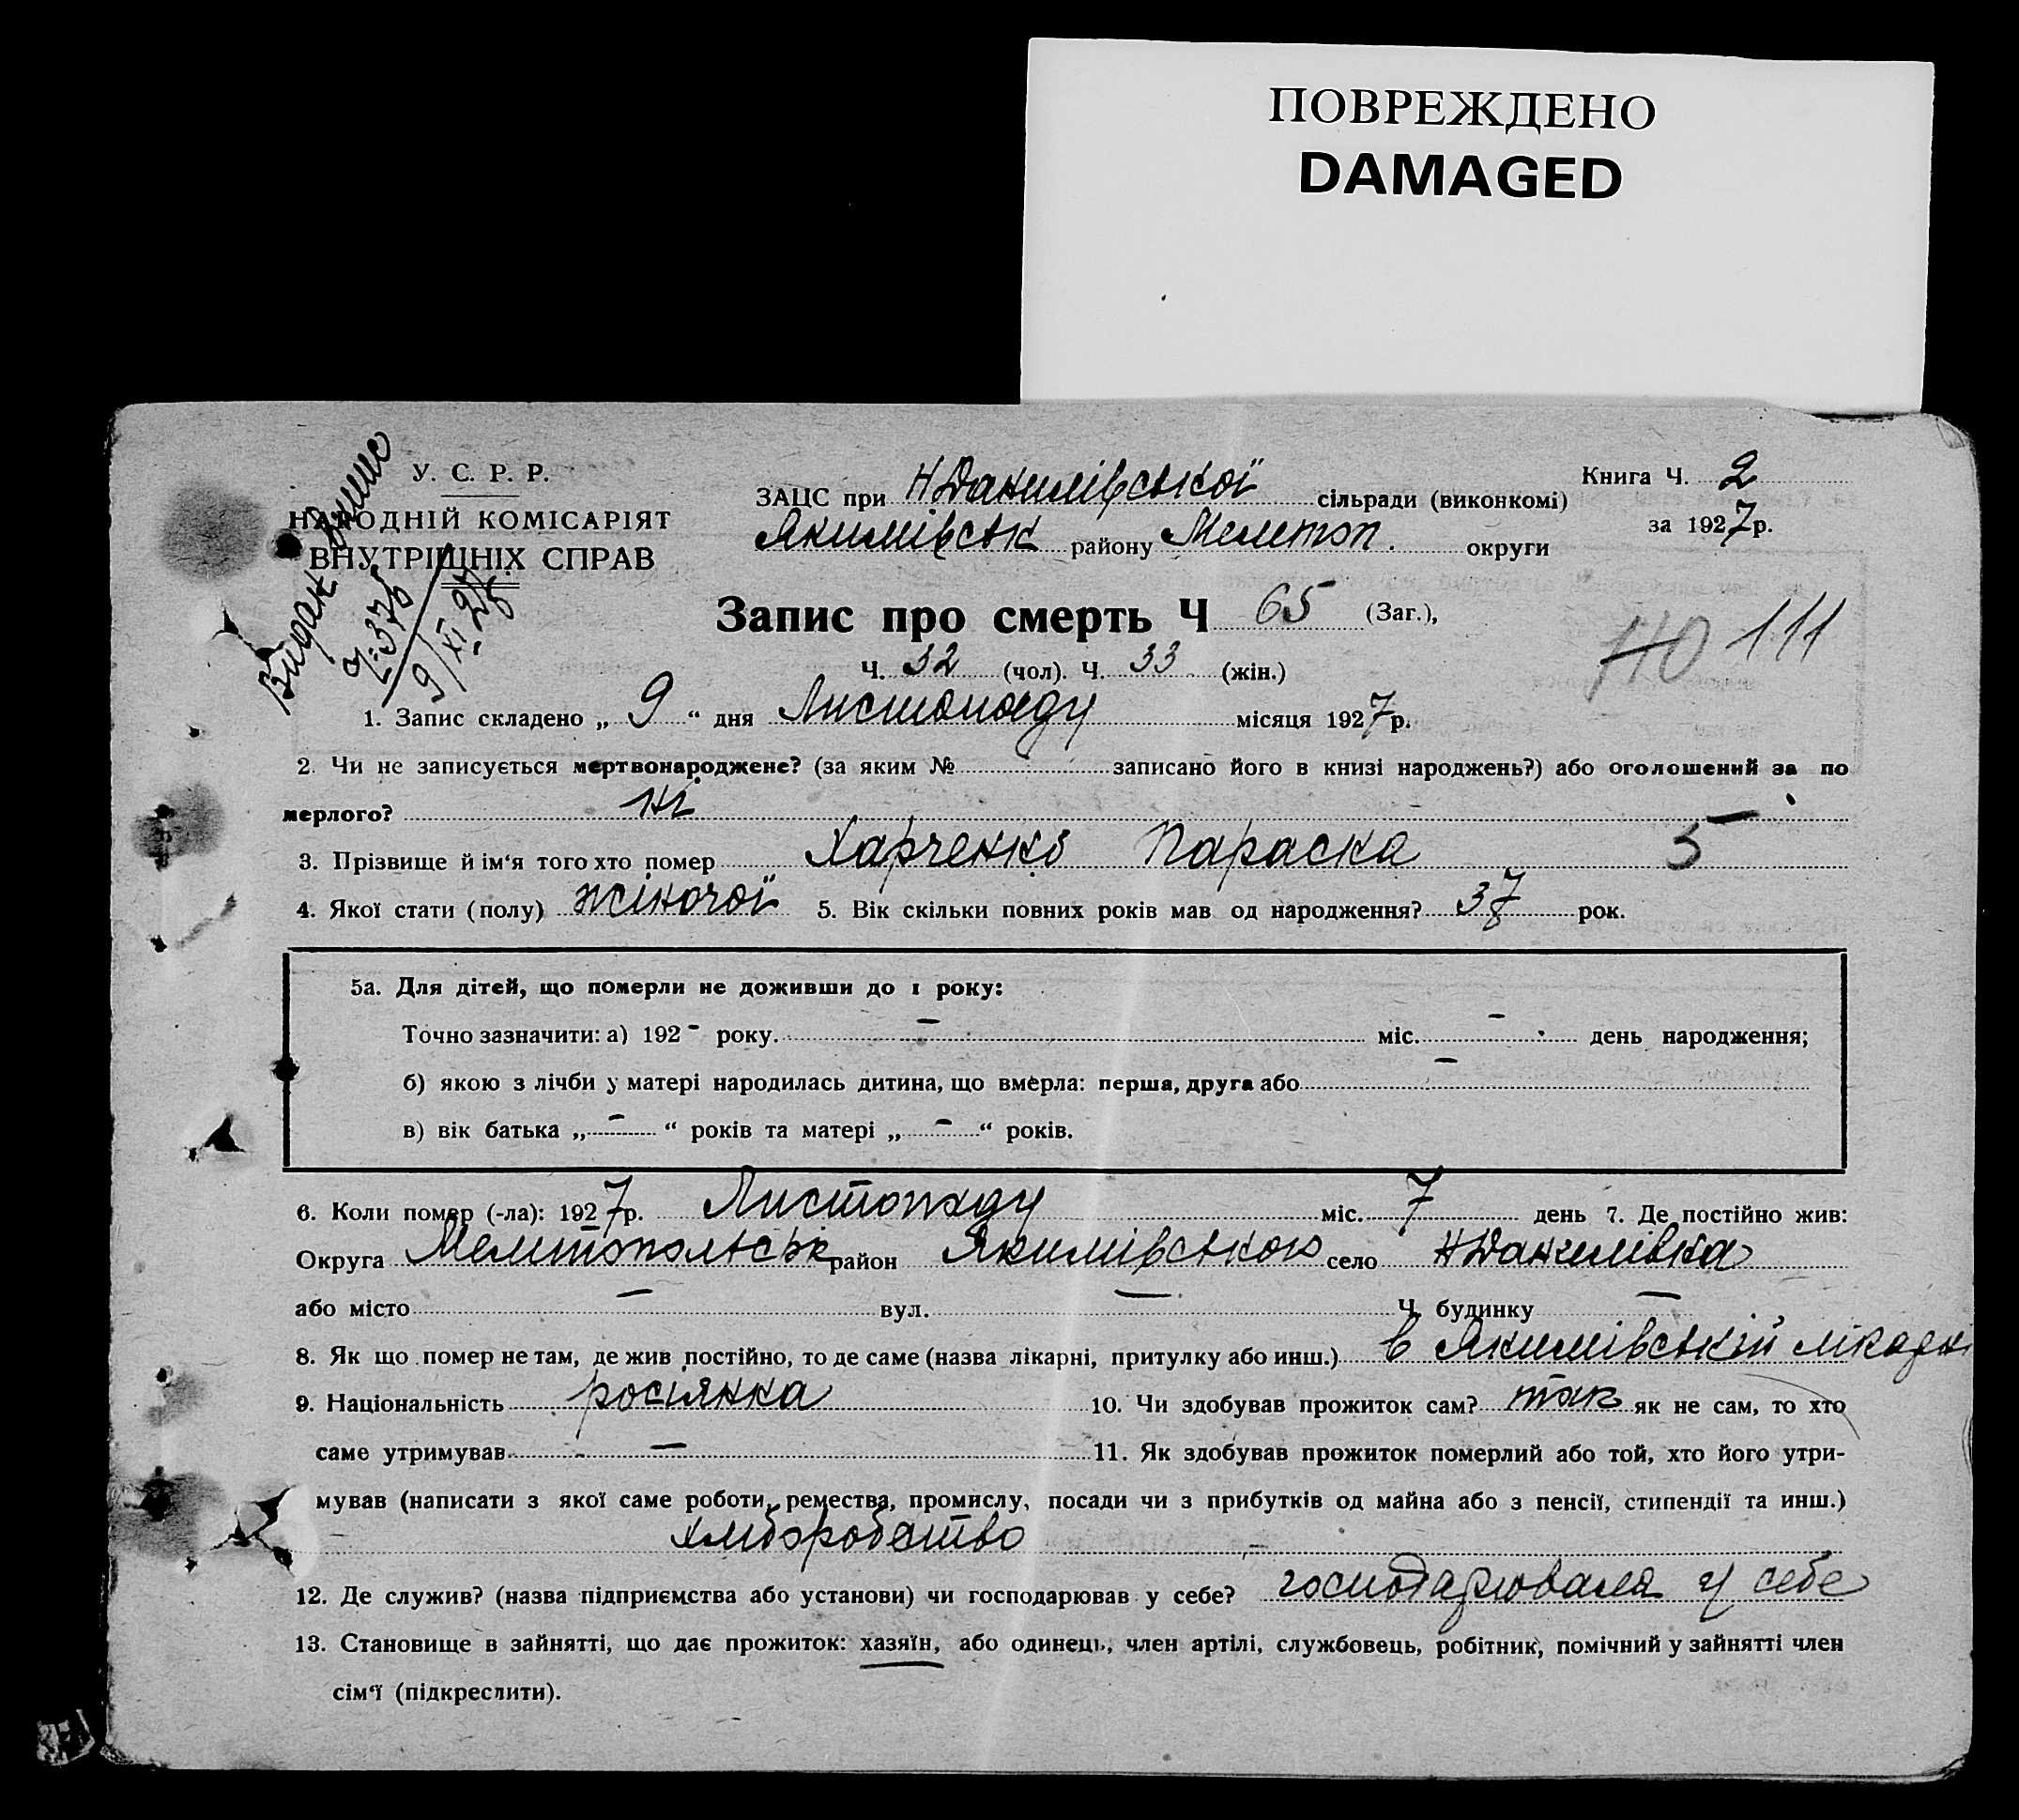 ПОВРЕЖДЕНО
DAMAGED
У. С. Р. Р.
НАРОДНІЙ КОМІСАРІЯТ
ВНУТРІШНІХ СПРАВ
Видан
9/XI 27
ЗАЦС при НДанилівської сільради (виконкомі)
Якимівськ району Мелетоп. округи
Книга Ч. 2
за 1927р.
Запис про смерть Ч 65 (Заг.),
110 111
Ч. 32 (чол). Ч. 33 (жін.)
1. Запис складено „ 9 “ дня Листопаду місяця 1927р.
2. Чи не записується мертвонароджене? (за яким № записано його в книзі народжень?) або оголошений за по
мерлого? ні
3. Прізвище й ім‘я того хто помер Харченко Параска 5
4. Якої стати (полу) жіночої 5. Вік скільки повних років мав од народження? 37 рок.
5а. Для дітей, що померли не доживши до 1 року:
Точно зазначити: а) 192- року. — міс. — день народження;
б) якою з лічби у матері народилась дитина, що вмерла: перша, друга або —
в) вік батька „ — “ років та матері „ — “ років.
6. Коли помер (-ла): 1927р. Листопаду міс. 7 день 7. Де постійно жив:
Округа Мелітопольськ район Якимівського село НДанилівка
або місто — вул. — Ч. будинку —
8. Як що помер не там, де жив постійно, то де саме (назва лікарні, притулку або инш.) в Якимівській лікарні
9. Національність росіянка 10. Чи здобував прожиток сам? так як не сам, то хто
саме утримував — 11. Як здобував прожиток померлий або той, хто його утри-
мував (написати з якої саме роботи, ремества, промислу, посади чи з прибутків од майна або з пенсії, стипендії та инш.)
хліборобство
12. Де служив? (назва підприємства або установи) чи господарював у себе? господарювала у себе
13. Становище в зайнятті, що дає прожиток: хазяїн, або одинець, член артілі, службовець, робітник, помічний у зайнятті член
сім‘ї (підкреслити).